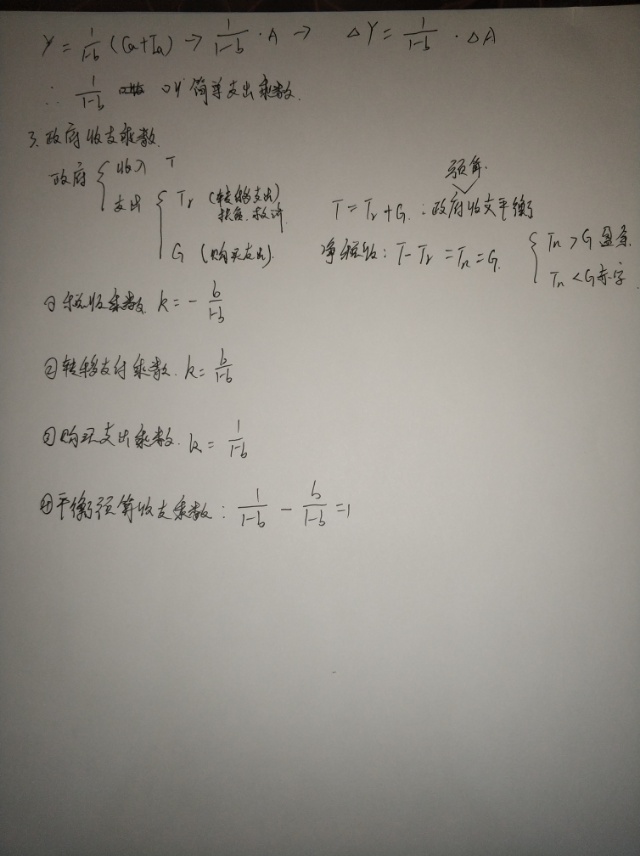 Y = 1/(1-b) (Ca+Ia) → 1/(1-b) · A → ΔY = 1/(1-b) · ΔA
∴ 1/(1-b) 简单支出乘数.
3. 政府收支乘数.
政府 { 收入 T
支出 { Tr (转移支出)
扶贫. 救济
G (购买支出).
预算
T = Tr + G. : 政府收支平衡
净税收: T - Tr = Tn = G. { Tn > G 盈余.
Tn < G 赤字.
① 税收乘数 k = - b/(1-b)
② 转移支付乘数. k = b/(1-b)
③ 购买支出乘数. k = 1/(1-b)
④ 平衡预算收支乘数: 1/(1-b) - b/(1-b) = 1